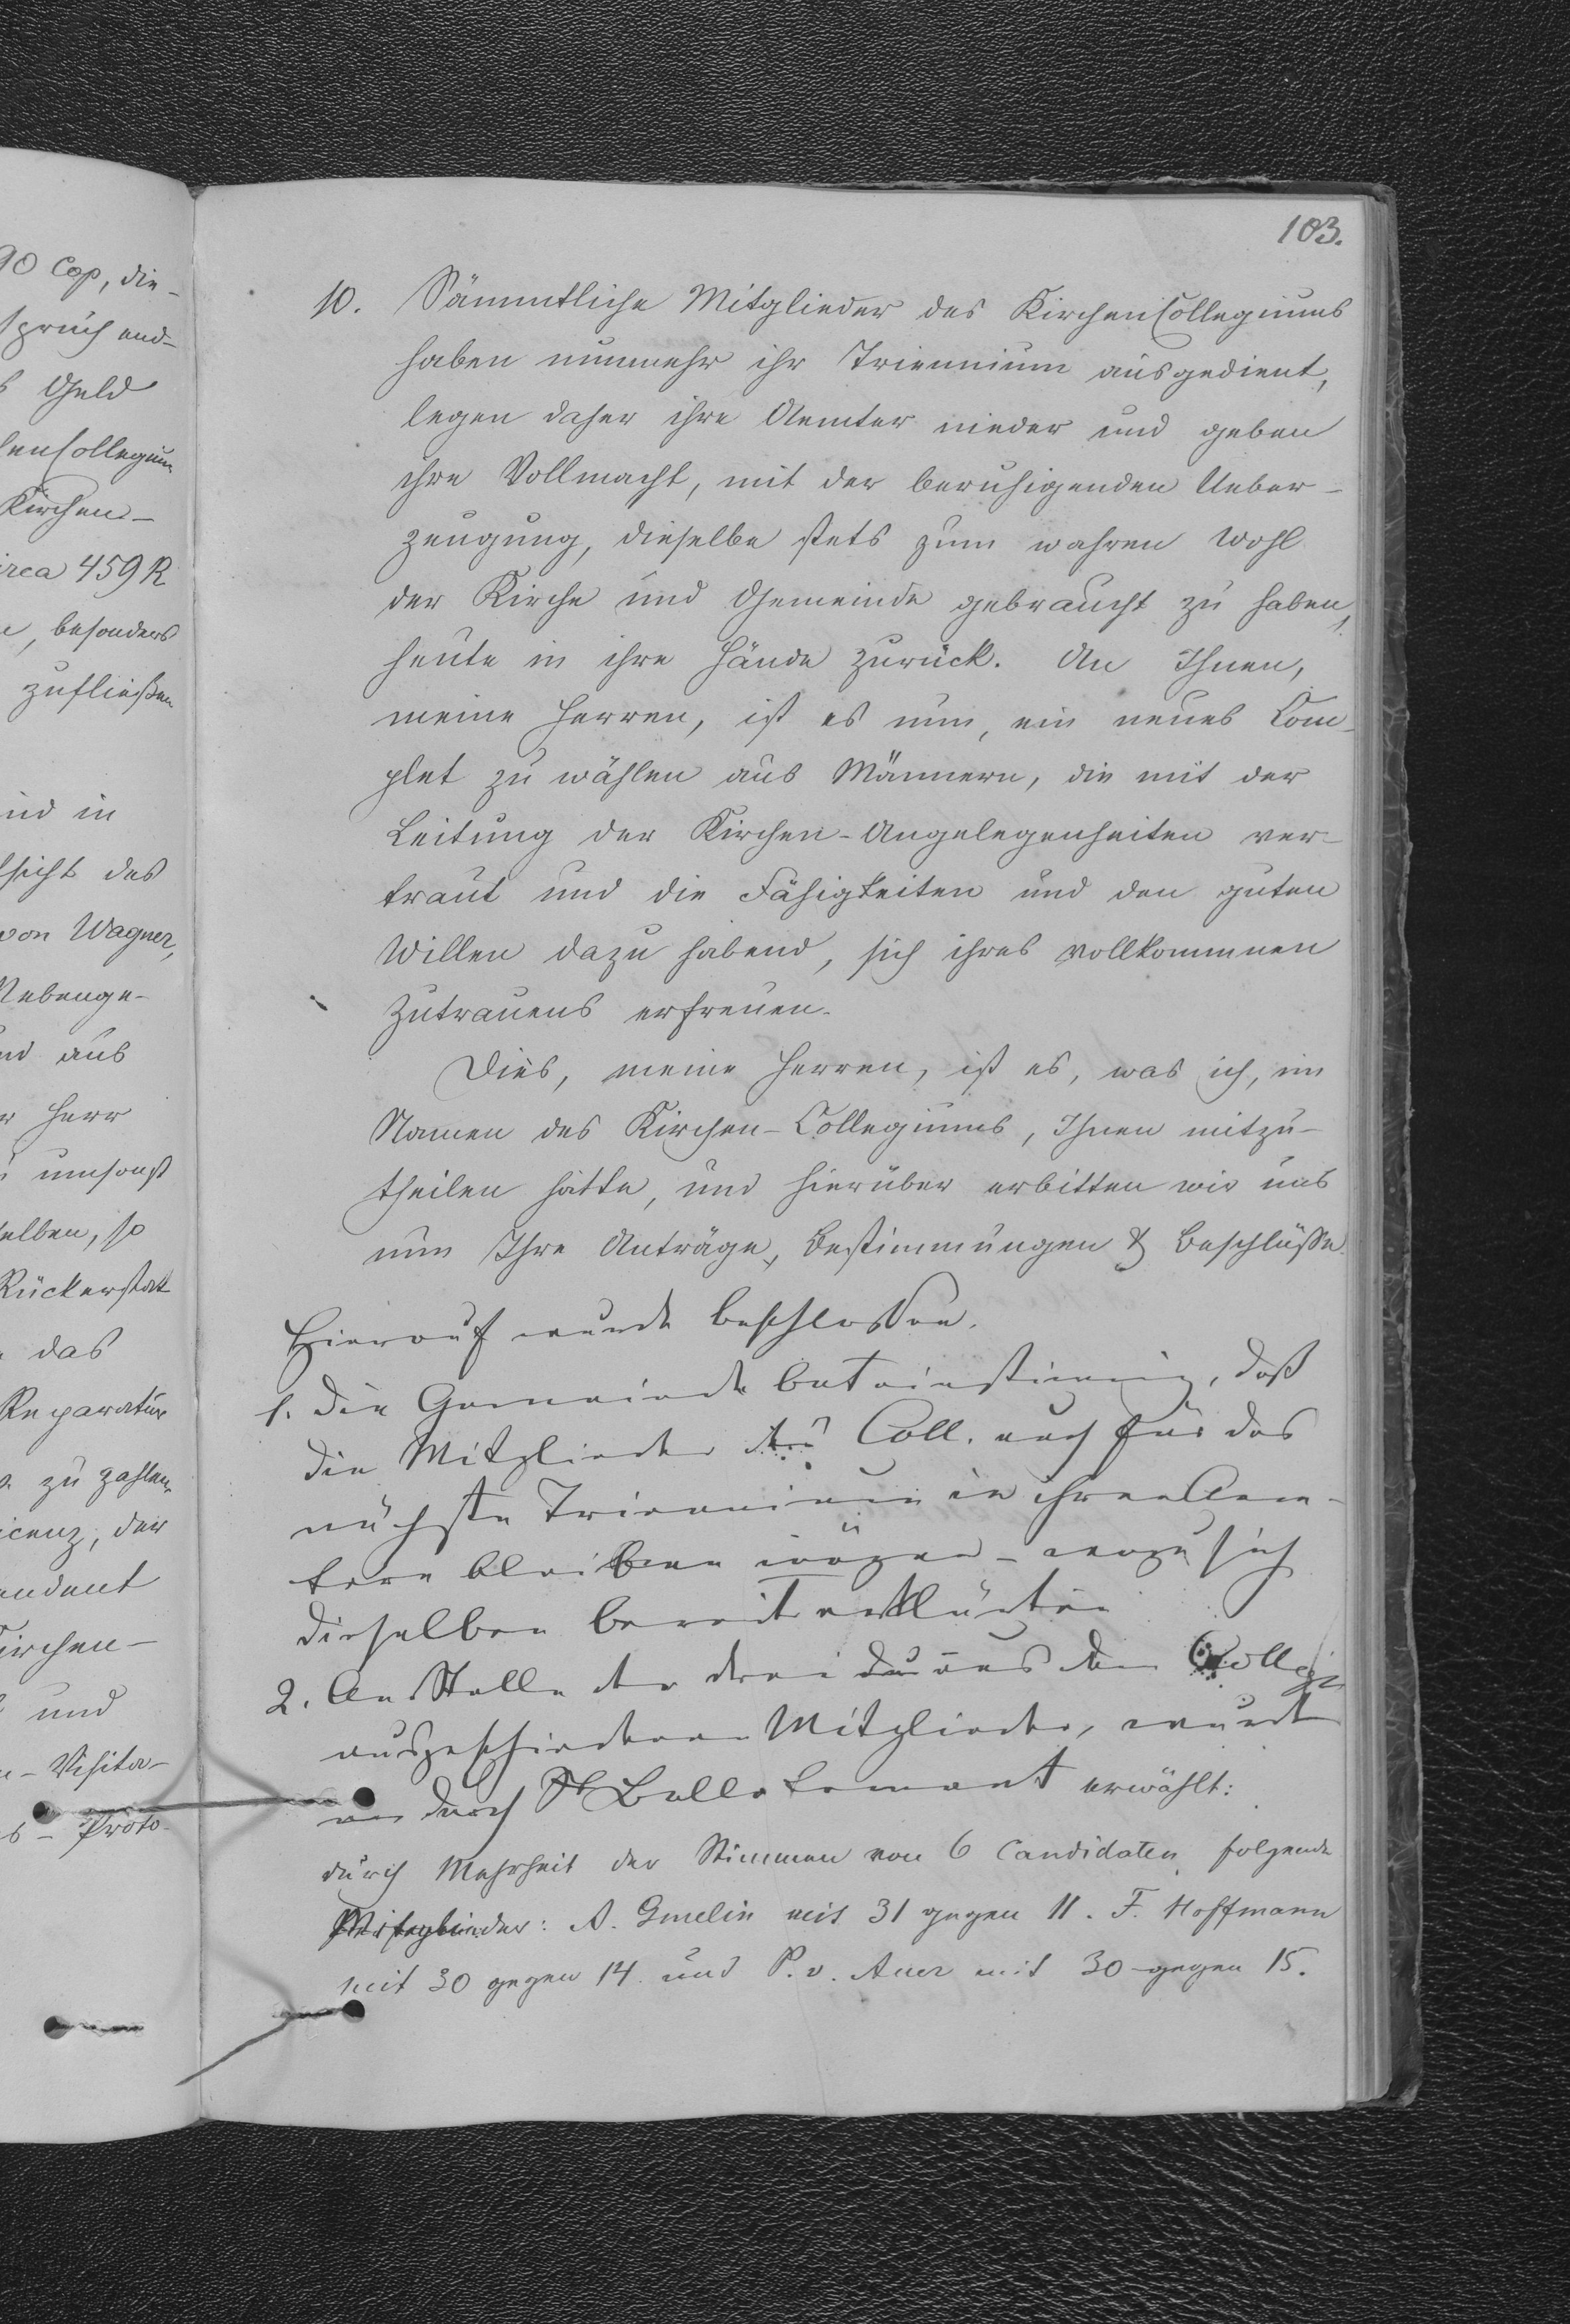 90 Cop, die-
spruch end-
s Geld
henCollegium
Kirchen-
irca 459 R
, besonders
zufließen
und in
sicht des
von Wagner,
Nebenge-
und aus
Herr
umsonst
selben, so
Rückerstat
das
Reparatur
zu zahlen,
icenz, der
endent
Kirchen-
und
- Visita-
s-Proto-
103.
10. Sämmtliche Mitglieder des KirchenCollegiums
haben nunmehr ihr Triennium ausgedient,
legen daher ihre Aemter nieder und geben
ihre Vollmacht, mit der beruhigenden Ueber-
zeugung, dieselbe stets zum wahren Wohl
der Kirche und Gemeinde gebraucht zu haben,
heute in ihre Hände zurück. An Ihnen,
meine Herren, ist es nun, ein neues Com-
plet zu wählen aus Männern, die mit der
Leitung der Kirchen-Angelegenheiten ver-
traut und die Fähigkeiten und den guten
Willen dazu habend, sich ihres vollkommnen
Zutrauens erfreuen.
Dies, meine Herren, ist es, was ich, im
Namen des Kirchen-Collegiums, Ihnen mitzu-
theilen hatte, und hierüber erbitten wir uns
nun Ihre Anträge, Bestimmungen & Beschlüsse.
Hierauf wurde beschlossen.
1. Die Gemeinde bat einstimmig, daß
die Mitglieder des Coll. auch für das
nächste Triennium in ihren Aem-
tern bleiben mögen - wozu sich
dieselben bereit erklärten
2. An Stelle der drei aus dem Collegio
ausgeschiedenen Mitglieder, wurden
durch Ballotement erwählt:
durch Mehrheit der Stimmen von 6 Candidaten folgende
Mitglieder: A. Gmelin mit 31 gegen 11. F. Hoffmann
mit 30 gegen 14. und P. v. Auer mit 30 gegen 15.